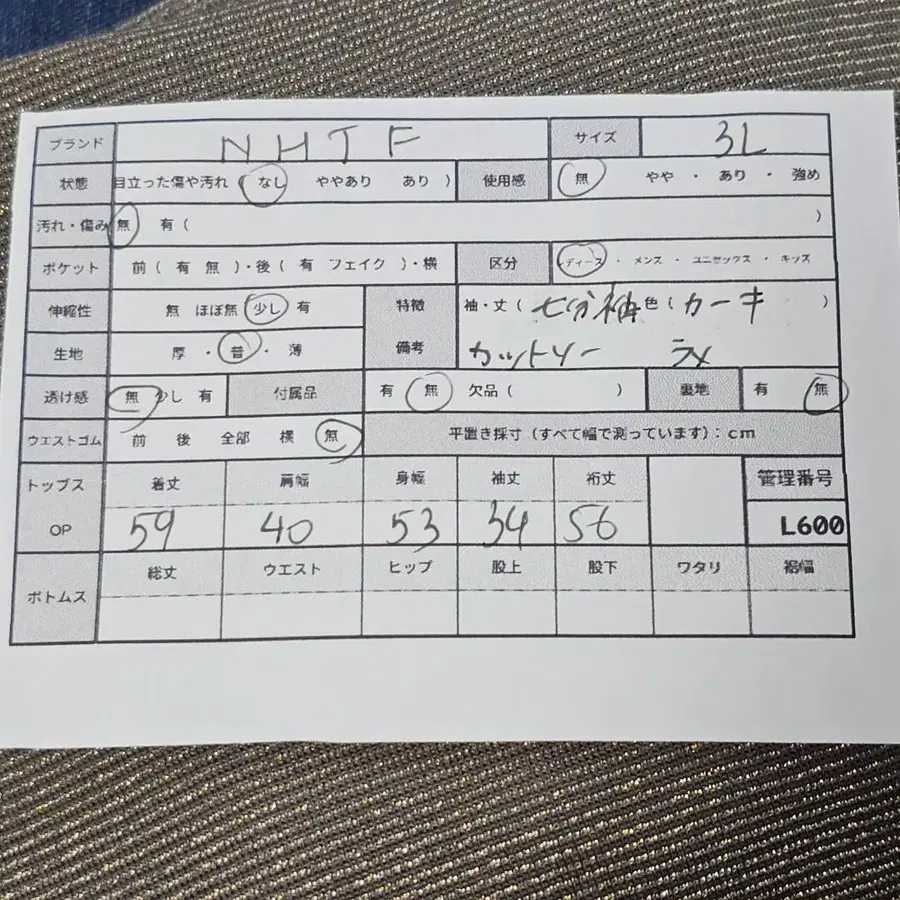 ブランド NHTF サイズ 3L
状態 目立った傷や汚れ( なし ややあり あり ) 使用感 無 やや ・ あり ・ 強め
汚れ・傷み 無 有 ( )
ポケット 前( 有 無 )・後( 有 フェイク )・横 区分 ディース ・ メンズ ・ ユニセックス ・ キッズ
伸縮性 無 ほぼ無 少し 有 特徴 袖・丈( 七分袖 色( カーキ )
生地 厚 ・ 普 ・ 薄 備考 カットソー ラメ
透け感 無 少し 有 付属品 有 無 欠品( ) 裏地 有 無
ウエストゴム 前 後 全部 横 無 平置き採寸(すべて幅で測っています):cm
トップス 着丈 肩幅 身幅 袖丈 裄丈 管理番号
OP 59 40 53 34 56 L600
ボトムス 総丈 ウエスト ヒップ 股上 股下 ワタリ 裾幅